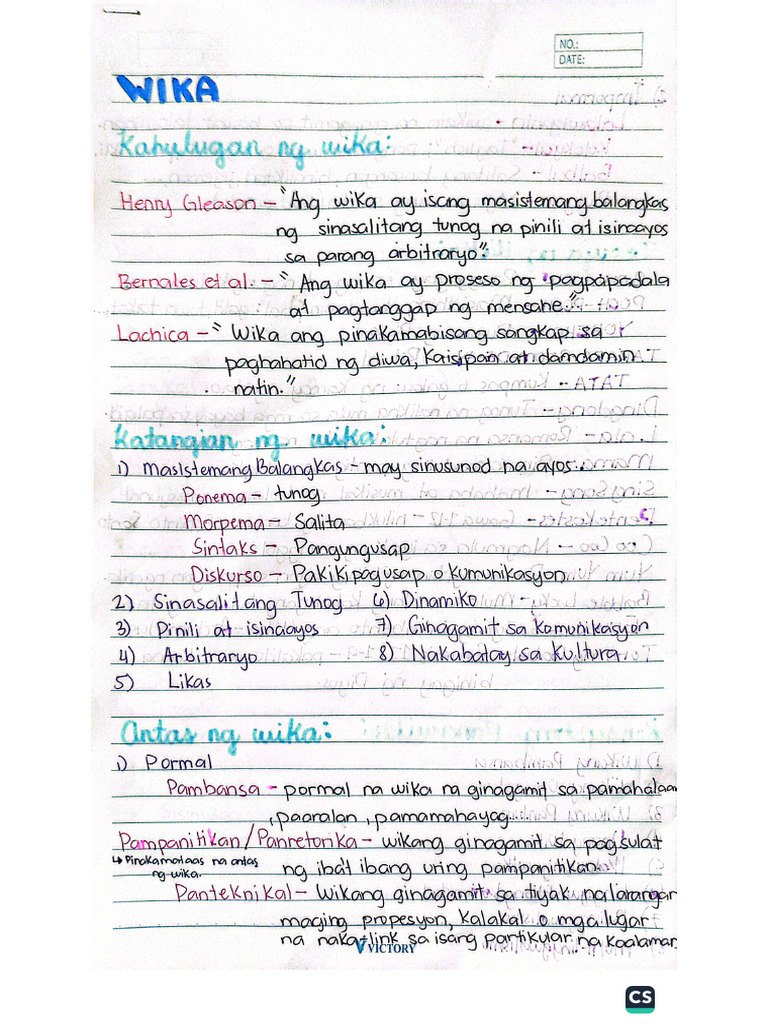 NO.:
DATE:
WIKA
Kahulugan ng wika:
Henry Gleason - "Ang wika ay isang masistemang balangkas
ng sinasalitang tunog na pinili at isinaayos
sa parang arbitraryo"
Bernales et al. - "Ang wika ay proseso ng pagpapadala
at pagtanggap ng mensahe."
Lachica - "Wika ang pinakamabisang sangkap sa
paghahatid ng diwa, kaisipan at damdamin
natin."
Katangian ng wika:
1) Masistemang Balangkas - may sinusunod na ayos.
Ponema - tunog
Morpema - Salita
Sintaks - Pangungusap
Diskurso - Pakikipagusap o kumunikasyon
2) Sinasalitang Tunog 6) Dinamiko
3) Pinili at isinaayos 7) Ginagamit sa komunikasyon
4) Arbitraryo 8) Nakabatay sa kultura
5) Likas
Antas ng wika:
1) Pormal
Pambansa - pormal na wika na ginagamit sa pamahalaan
, paaralan, pamamahayag
Pampanitikan/Panretorika - wikang ginagamit sa pagsulat
↳ Pinakamataas na antas
ng wika.
ng iba't ibang uring pampanitikan.
Panteknikal - Wikang ginagamit sa tiyak na larangan
maging propesyon, kalakal o mga lugar
na naka-link sa isang partikular na kaalaman
VICTORY
CS